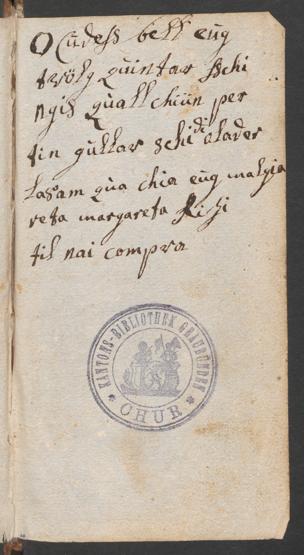 O Cudesh bell eug
tvölg quintar schi
ngis quall chiün per
tin guttar schi di clader
lasam qua chia eug malgia
reta margareta
til nai compra
KANTONS-BIBLIOTHEK GRAUBÜNDEN
CHUR